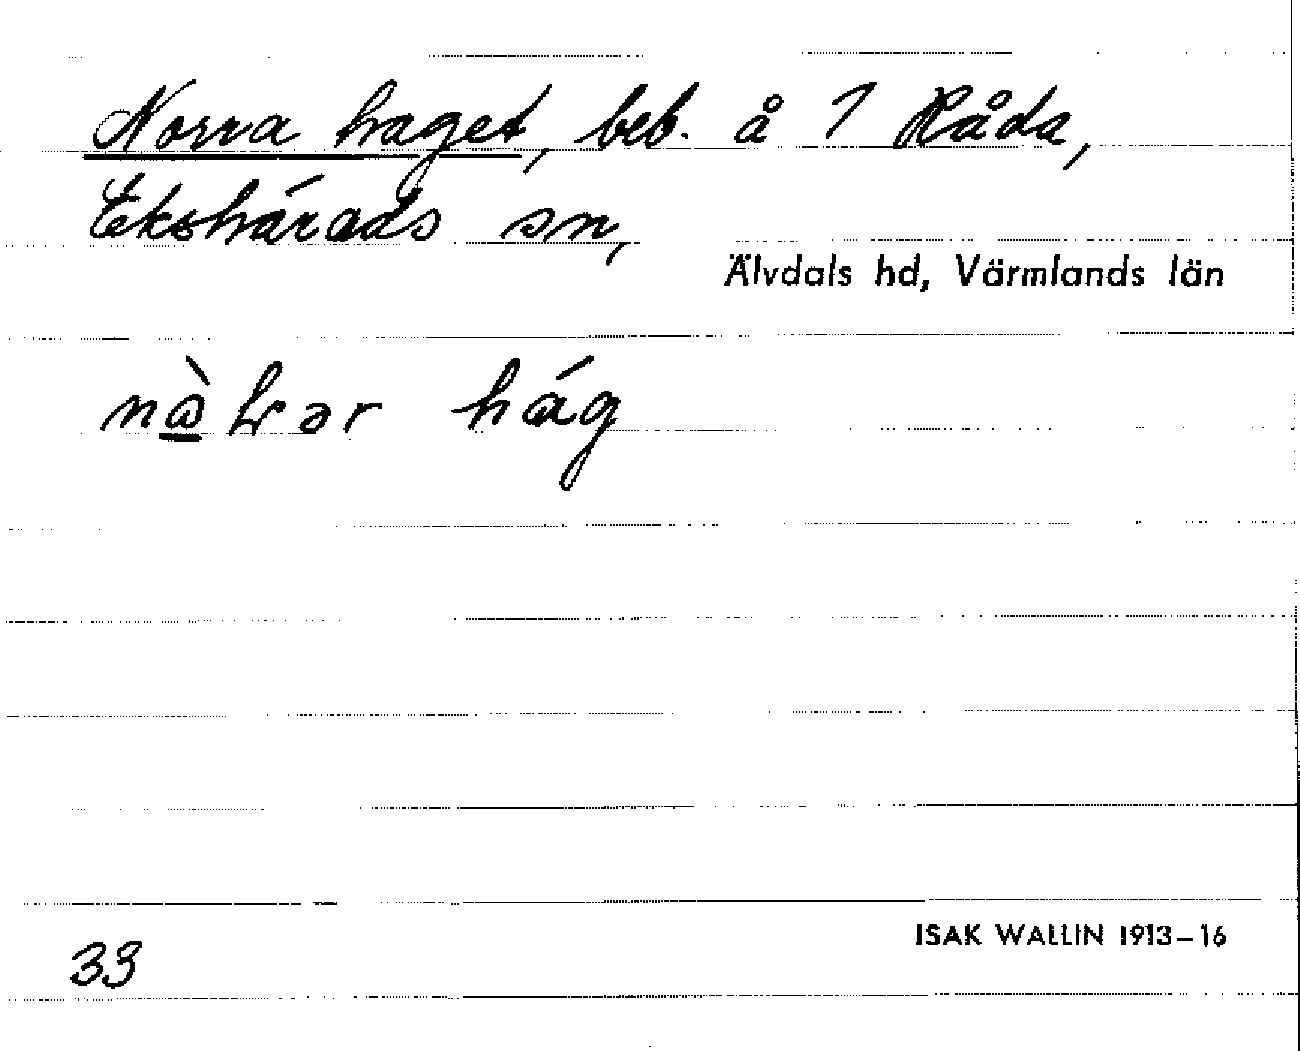 Norra haget, beb. å 1 Råda,
Ekshärads sn,
Älvdals hd, Värmlands län
hág
ISAK WALLIN 1913–16
33